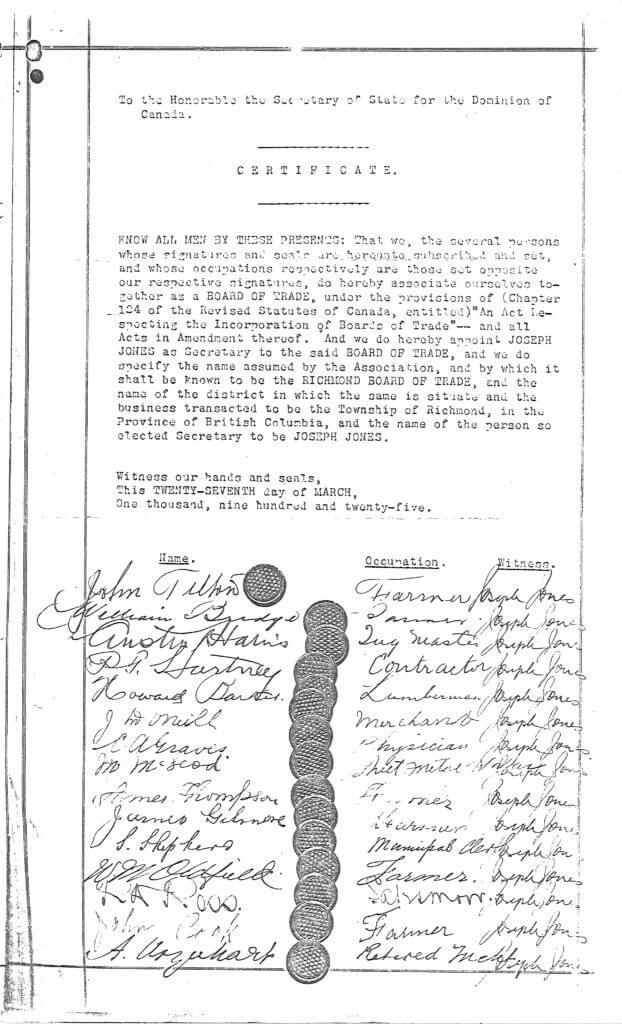 To the Honorable the Secretary of State for the Dominion of
Canada.
CERTIFICATE.
KNOW ALL MEN BY THESE PRESENTS: That we, the several persons
whose signatures and seals are hereunto subscribed and set,
and whose occupations respectively are those set opposite
our respective signatures, do hereby associate ourselves to-
gether as a BOARD OF TRADE, under the provisions of (Chapter
124 of the Revised Statutes of Canada, entitled)"An Act Re-
specting the Incorporation of Boards of Trade"-- and all
Acts in Amendment thereof. And we do hereby appoint JOSEPH
JONES as Secretary to the said BOARD OF TRADE, and we do
specify the name assumed by the Association, and by which it
shall be known to be the RICHMOND BOARD OF TRADE, and the
name of the district in which the same is situate and the
business transacted to be the Township of Richmond, in the
Province of British Columbia, and the name of the person so
elected Secretary to be JOSEPH JONES.
Witness our hands and seals,
This TWENTY-SEVENTH day of MARCH,
One thousand, nine hundred and twenty-five.
Name. Occupation. Witness.
John Tilton Farmer Joseph Jones
William Bridge Joseph Jones
Austin Harris Tug Master Joseph Jones
Contractor Joseph Jones
Howard Lumberman Joseph Jones
J Merchant Joseph Jones
C A Graves Physician Joseph Jones
M McLeod Sheet Metal Worker Joseph Jones
James Thompson Joseph Jones
James Gilmore Farmer Joseph Jones
S. Shepherd Municipal Clerk Joseph Jones
W M Oldfield Farmer. Joseph Jones
Ross. Joseph Jones
John Farmer Joseph Jones
A. Urquhart Retired Joseph Jones